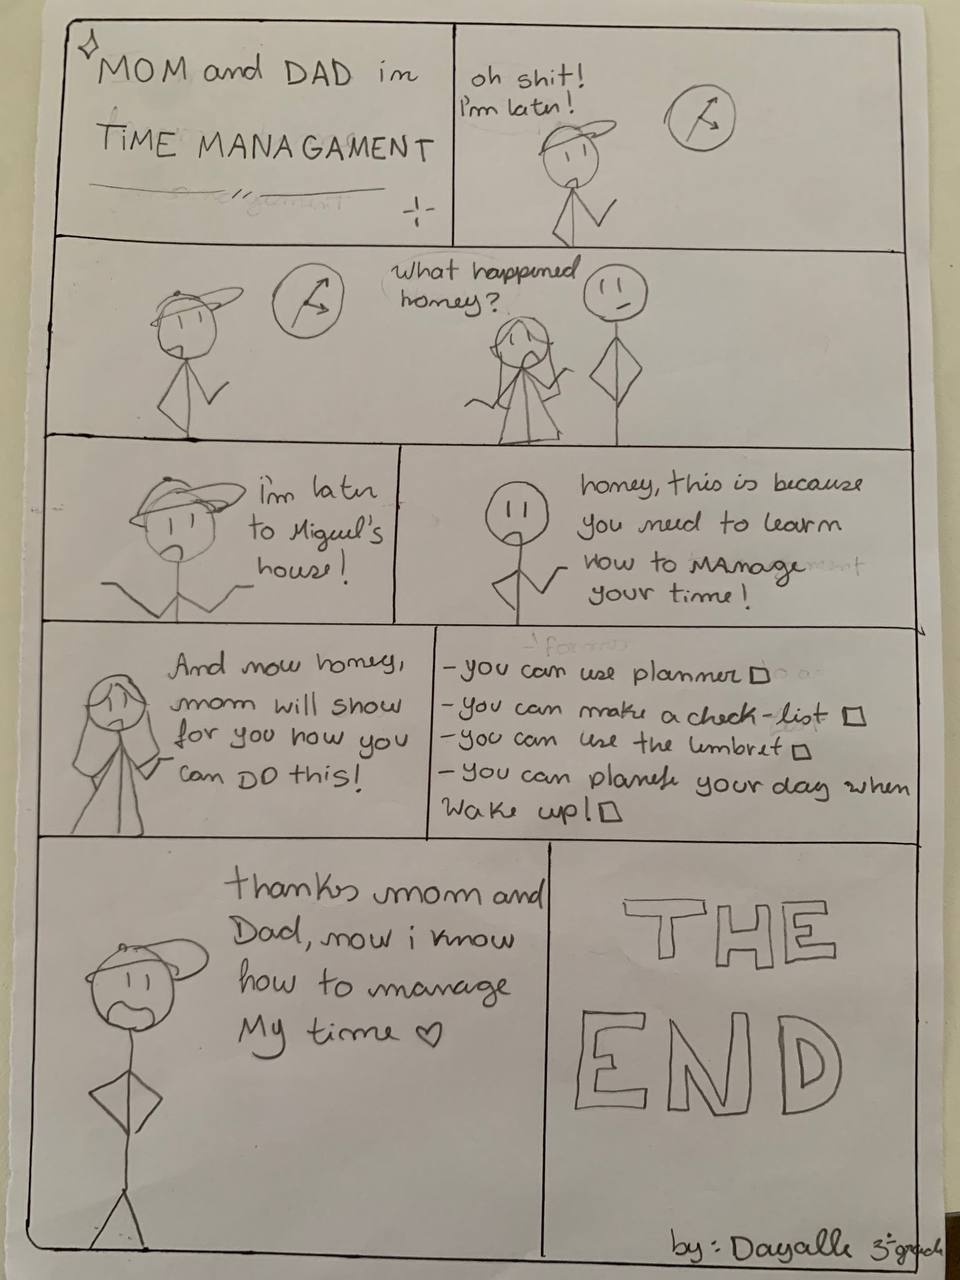 MOM and DAD in
TiME MANAGAMENT
oh shit!
I'm later!
What happened
honey?
i'm later
to Miguel's
house!
honey, this is because
you need to learn
how to MAnage
your time!
And now honey,
mom will show
for you how you
can DO this!
- you can use planner
- you can make a check-list
- you can use the
- you can your day when
wake up!
thanks mom and
Dad, now i know
how to manage
My time ♡
THE
END
by: Dayalle 3ª grade